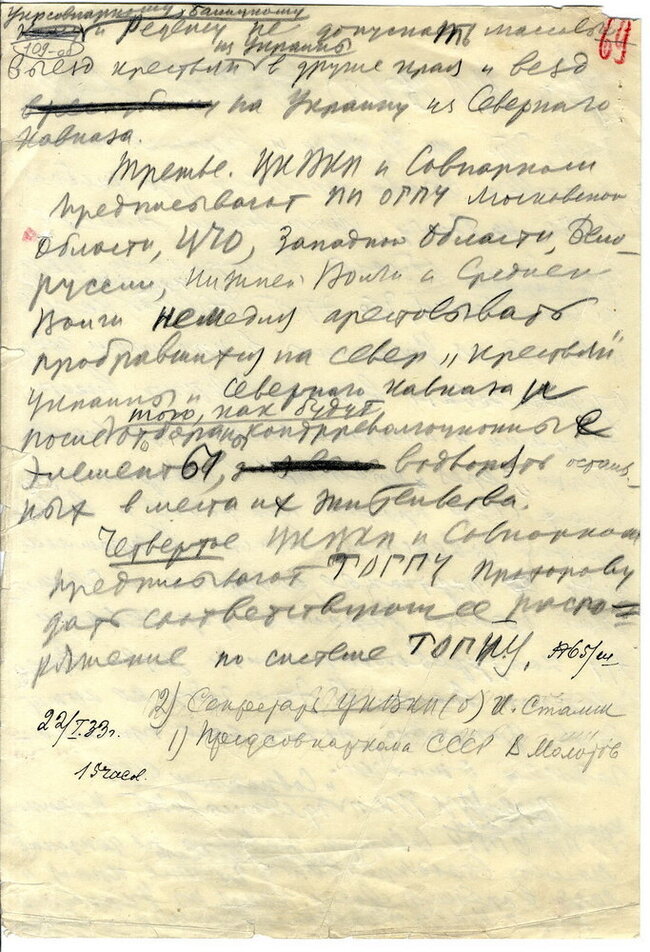 Укрсовнаркому, Балицкому
и Реденсу не допускать массовый
69
109-об
из Украины
выезд крестьян в другие края и въезд
на Украину из Северного
Кавказа.
Третье. ЦК ВКП и Совнарком
предписывают ПП ОГПУ Московской
Области, ЦЧО, Западной области, Бело-
руссии, Нижней Волги и Средней
Волги немедля арестовывать
пробравшихся на север „крестьян"
Украины и Северного Кавказа и
того, как будут
после отобраны контрреволюционные
элементы, водворять осталь-
ных в места их жительства.
Четвертое ЦК ВКП и Совнарком
предписывают ТОГПУ Прохорову
дать соответствующее распо-
ряжение по системе ТОГПУ.
№65/ш
2) Секретарь ЦК ВКП(б) И. Сталин
22/I.33г.
1) Предсовнаркома СССР В Молотов
15 часов.